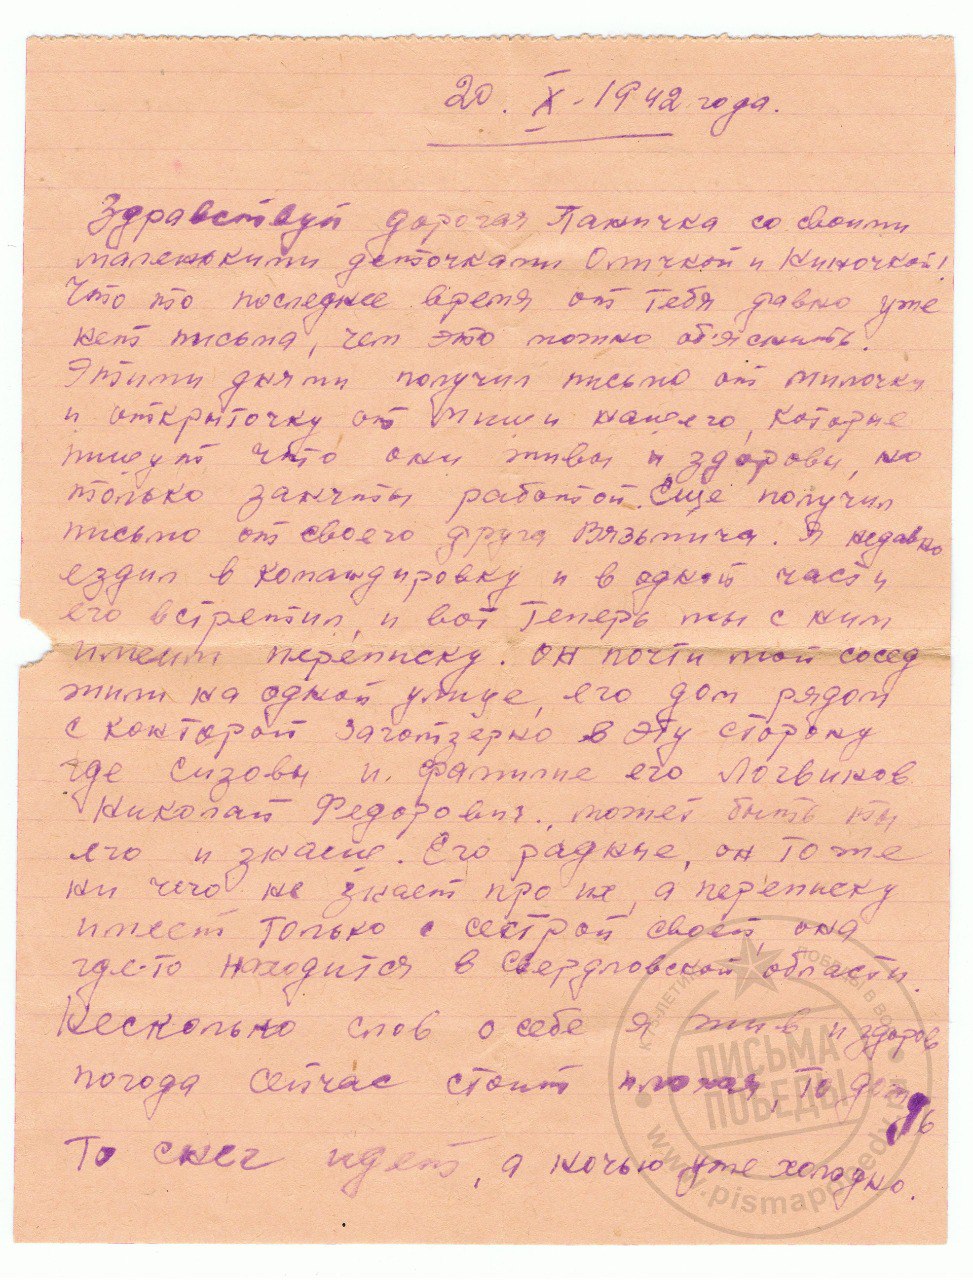 20. X - 1942 года.
Здравствуй дорогая Паничка со своими
маленькими деточками Оличкой и Ниночкой!
Что то последнее время от тебя давно уже
нет письма, чем это можно об'яснить.
Этими днями получил письмо от Милочки
и открыточку от Миши нашего, которые
пишут что они живы и здоровы, но
только заняты работой. Еще получил
письмо от своего друга Вязьмича. Я недавно
ездил в командировку и в одной части
его встретил, и вот теперь мы с ним
имеим переписку. Он почти мой сосед
жили на одной улице, его дом рядом
с конторой Заготзерно в эту сторону
где Сизовы и фамилие его Логвинов
Николай Федорович., может быть ты
его и знаеш. Его радные, он тоже
ни чего не знает про их, а переписку
имеет только с сестрой своей, она
где-то находится в Свердловской области.
Несколько слов о себе я жив и здоров
погода сейчас стоит плохая, то дождь
То снег идет, а ночью уже холодно.
ПИСЬМА
ПОБЕДЫ
www.pismapobedy.ru